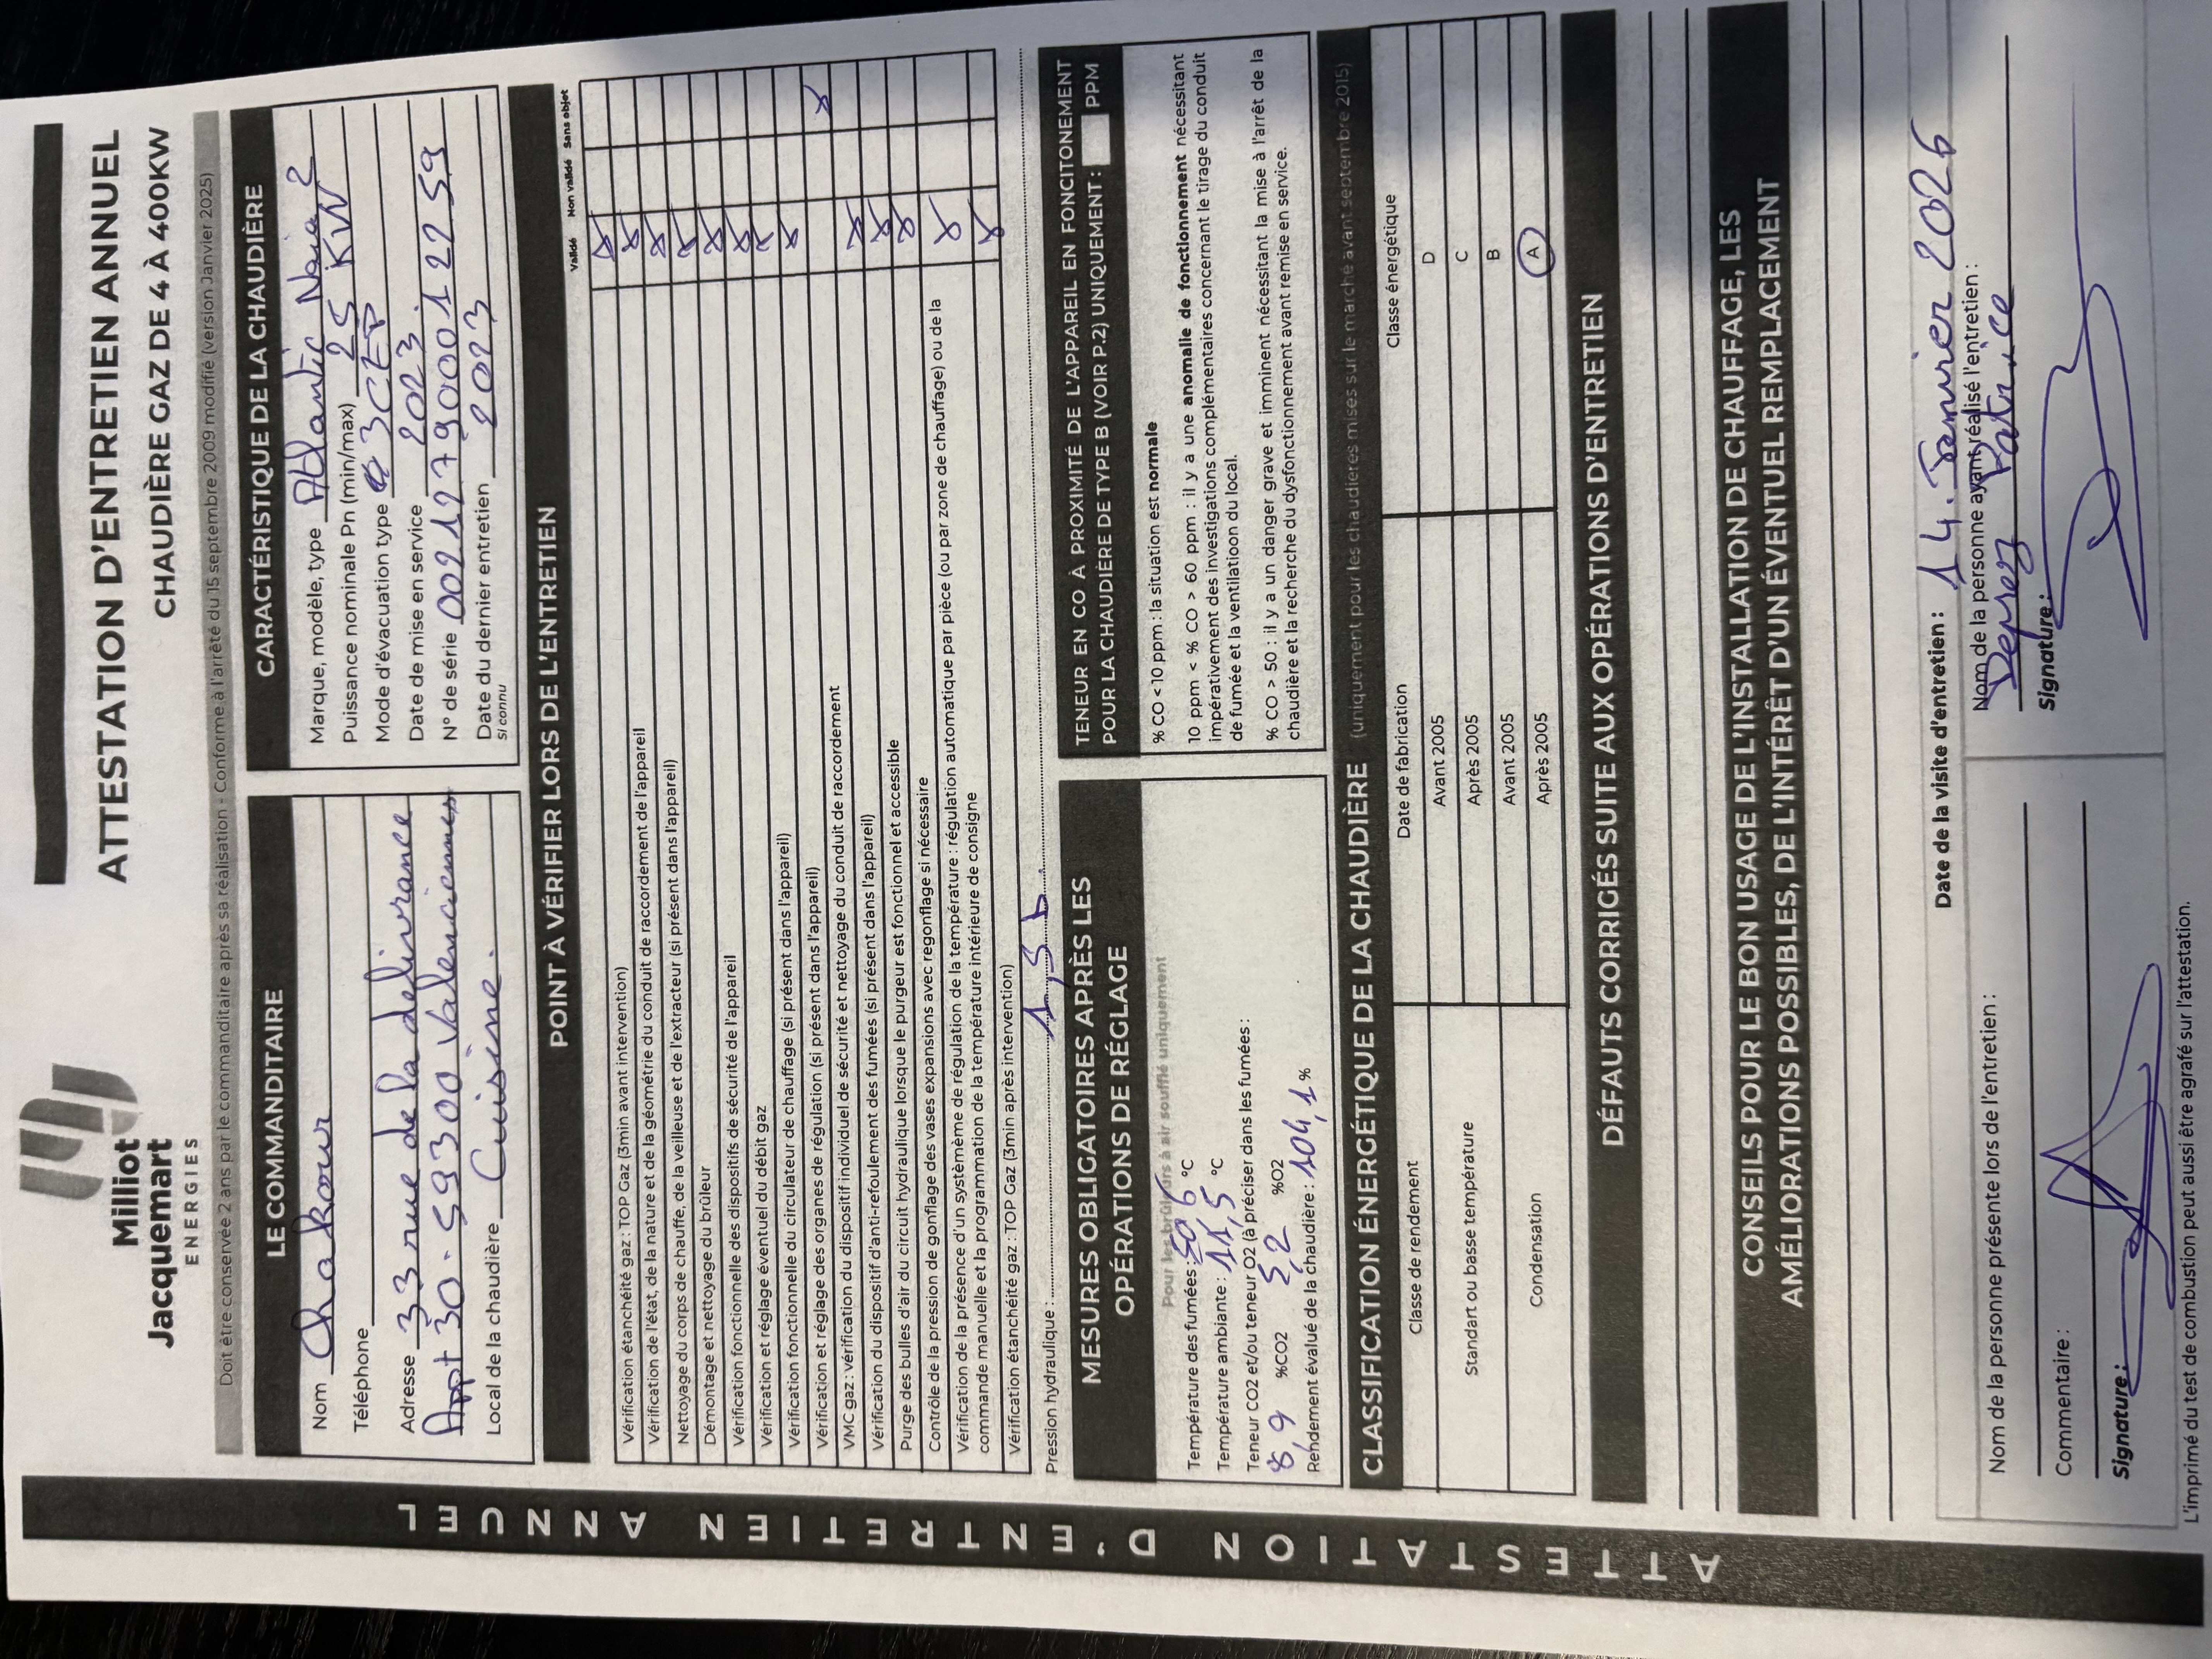 Milliot
Jacquemart
ENERGIES
ATTESTATION D'ENTRETIEN ANNUEL
CHAUDIÈRE GAZ DE 4 À 400KW
Doit être conservée 2 ans par le commanditaire après sa réalisation - Conforme à l'arrêté du 15 septembre 2009 modifié (version Janvier 2025)
LE COMMANDITAIRE
Nom Chakour
Téléphone
Adresse 33 rue de la delivrance
Appt 30. 59300 Valenciennes
Local de la chaudière Cuisine.
CARACTÉRISTIQUE DE LA CHAUDIÈRE
Marque, modèle, type Atlantic Naia 2
Puissance nominale Pn (min/max) 25 KW
Mode d'évacuation type 3CEP
Date de mise en service 2023.
N° de série 00212790001 22 59
Date du dernier entretien 2023
si connu
POINT À VÉRIFIER LORS DE L'ENTRETIEN
Validé Non validé Sans objet
Vérification étanchéité gaz : TOP Gaz (3min avant intervention)
Vérification de l'état, de la nature et de la géométrie du conduit de raccordement de l'appareil
Nettoyage du corps de chauffe, de la veilleuse et de l'extracteur (si présent dans l'appareil)
Démontage et nettoyage du brûleur
Vérification fonctionnelle des dispositifs de sécurité de l'appareil
Vérification et réglage éventuel du débit gaz
Vérification fonctionnelle du circulateur de chauffage (si présent dans l'appareil)
Vérification et réglage des organes de régulation (si présent dans l'appareil)
VMC gaz : vérification du dispositif individuel de sécurité et nettoyage du conduit de raccordement
Vérification du dispositif d'anti-refoulement des fumées (si présent dans l'appareil)
Purge des bulles d'air du circuit hydraulique lorsque le purgeur est fonctionnel et accessible
Contrôle de la pression de gonflage des vases expansions avec regonflage si nécessaire
Vérification de la présence d'un systèmème de régulation de la température : régulation automatique par pièce (ou par zone de chauffage) ou de la
commande manuelle et la programmation de la température intérieure de consigne
Vérification étanchéité gaz : TOP Gaz (3min après intervention)
Pression hydraulique : 1,5 b
MESURES OBLIGATOIRES APRÈS LES
OPÉRATIONS DE RÉGLAGE
Pour les brûleurs à air soufflé uniquement
Température des fumées : 50 6 °C
Température ambiante : 11,5 °C
Teneur CO2 et/ou teneur O2 (à préciser dans les fumées :
8,9 %CO2 5,2 %O2
Rendement évalué de la chaudière : 104,1 %
TENEUR EN CO À PROXIMITÉ DE L'APPAREIL EN FONCITONEMENT
POUR LA CHAUDIÈRE DE TYPE B (VOIR P.2) UNIQUEMENT : PPM
% CO < 10 ppm : la situation est normale
10 ppm < % CO > 60 ppm : il y a une anomalie de fonctionnement nécessitant
impérativement des investigations complémentaires concernant le tirage du conduit
de fumée et la ventilatioon du local.
% CO > 50 : il y a un danger grave et imminent nécessitant la mise à l'arrêt de la
chaudière et la recherche du dysfonctionnement avant remise en service.
CLASSIFICATION ÉNERGÉTIQUE DE LA CHAUDIÈRE (uniquement pour les chaudières mises sur le marché avant septembre 2015)
Classe de rendement Date de fabrication Classe énergétique
Standart ou basse température Avant 2005 D
Après 2005 C
Condensation Avant 2005 B
Après 2005 A
DÉFAUTS CORRIGÉS SUITE AUX OPÉRATIONS D'ENTRETIEN
CONSEILS POUR LE BON USAGE DE L'INSTALLATION DE CHAUFFAGE, LES
AMÉLIORATIONS POSSIBLES, DE L'INTÉRÊT D'UN ÉVENTUEL REMPLACEMENT
Date de la visite d'entretien : 14. Janvier 2026
Nom de la personne présente lors de l'entretien :
Commentaire :
Signature :
Nom de la personne ayant réalisé l'entretien :
Deprez Patrice
Signature :
L'imprimé du test de combustion peut aussi être agrafé sur l'attestation.
ATTESTATION D'ENTRETIEN ANNUEL